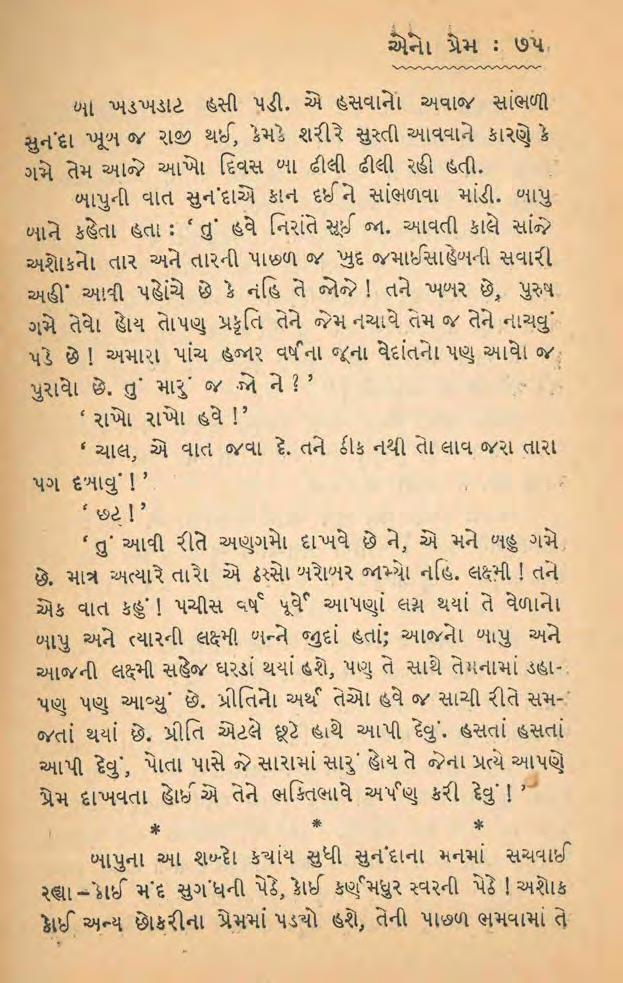 એનો પ્રેમ : ૭૫
બા ખડખડાટ હસી પડી. એ હસવાનો અવાજ સાંભળી
સુનંદા ખૂબ જ રાજી થઈ, કેમકે શરીરે સુસ્તી આવવાને કારણે કે
ગમે તેમ આજે આખો દિવસ બા ઢીલી ઢીલી રહી હતી.
બાપુની વાત સુનંદાએ કાન દઈને સાંભળવા માંડી. બાપુ
બાને કહેતા હતા : ‘ તું હવે નિરાંતે સૂઈ જા. આવતી કાલે સાંજે
અશોકનો તાર અને તારની પાછળ જ ખુદ જમાઈસાહેબની સવારી
અહીં આવી પહોંચે છે કે નહિ તે જોજે ! તને ખબર છે, પુરુષ
ગમે તેવો હોય તોપણ પ્રકૃતિ તેને જેમ નચાવે તેમ જ તેને નાચવું
પડે છે ! અમારા પાંચ હજાર વર્ષના જૂના વેદાંતનો પણ આવો જ
પુરાવો છે. તું મારું જ જો ને ? ’
‘ રાખો રાખો હવે ! ’
‘ ચાલ, એ વાત જવા દે. તને ઠીક નથી તો લાવ જરા તારા
પગ દબાવું ! ’
‘ છટ્ ! ’
‘ તું આવી રીતે અણગમો દાખવે છે ને, એ મને બહુ ગમે
છે. માત્ર અત્યારે તારો એ ઠસ્સો બરોબર જામ્યો નહિ. લક્ષ્મી ! તને
એક વાત કહું ! પચીસ વર્ષ પૂર્વે આપણાં લગ્ન થયાં તે વેળાનો
બાપુ અને ત્યારની લક્ષ્મી બન્ને જુદાં હતાં; આજનો બાપુ અને
આજની લક્ષ્મી સહેજ ઘરડાં થયાં હશે, પણ તે સાથે તેમનામાં ડહા-
પણ પણ આવ્યું છે. પ્રીતિનો અર્થ તેઓ હવે જ સાચી રીતે સમ-
જતાં થયાં છે. પ્રીતિ એટલે છૂટે હાથે આપી દેવું. હસતાં હસતાં
આપી દેવું, પોતા પાસે જે સારામાં સારું હોય તે જેના પ્રત્યે આપણે
પ્રેમ દાખવતા હોઈએ તેને ભક્તિભાવે અર્પણ કરી દેવું ! ’
* * *
બાપુના આ શબ્દો ક્યાંય સુધી સુનંદાના મનમાં સચવાઈ
રહ્યા – કોઈ મંદ સુગંધની પેઠે, કોઈ કર્ણમધુર સ્વરની પેઠે ! અશોક
કોઈ અન્ય છોકરીના પ્રેમમાં પડ્યો હશે, તેની પાછળ ભમવામાં તે